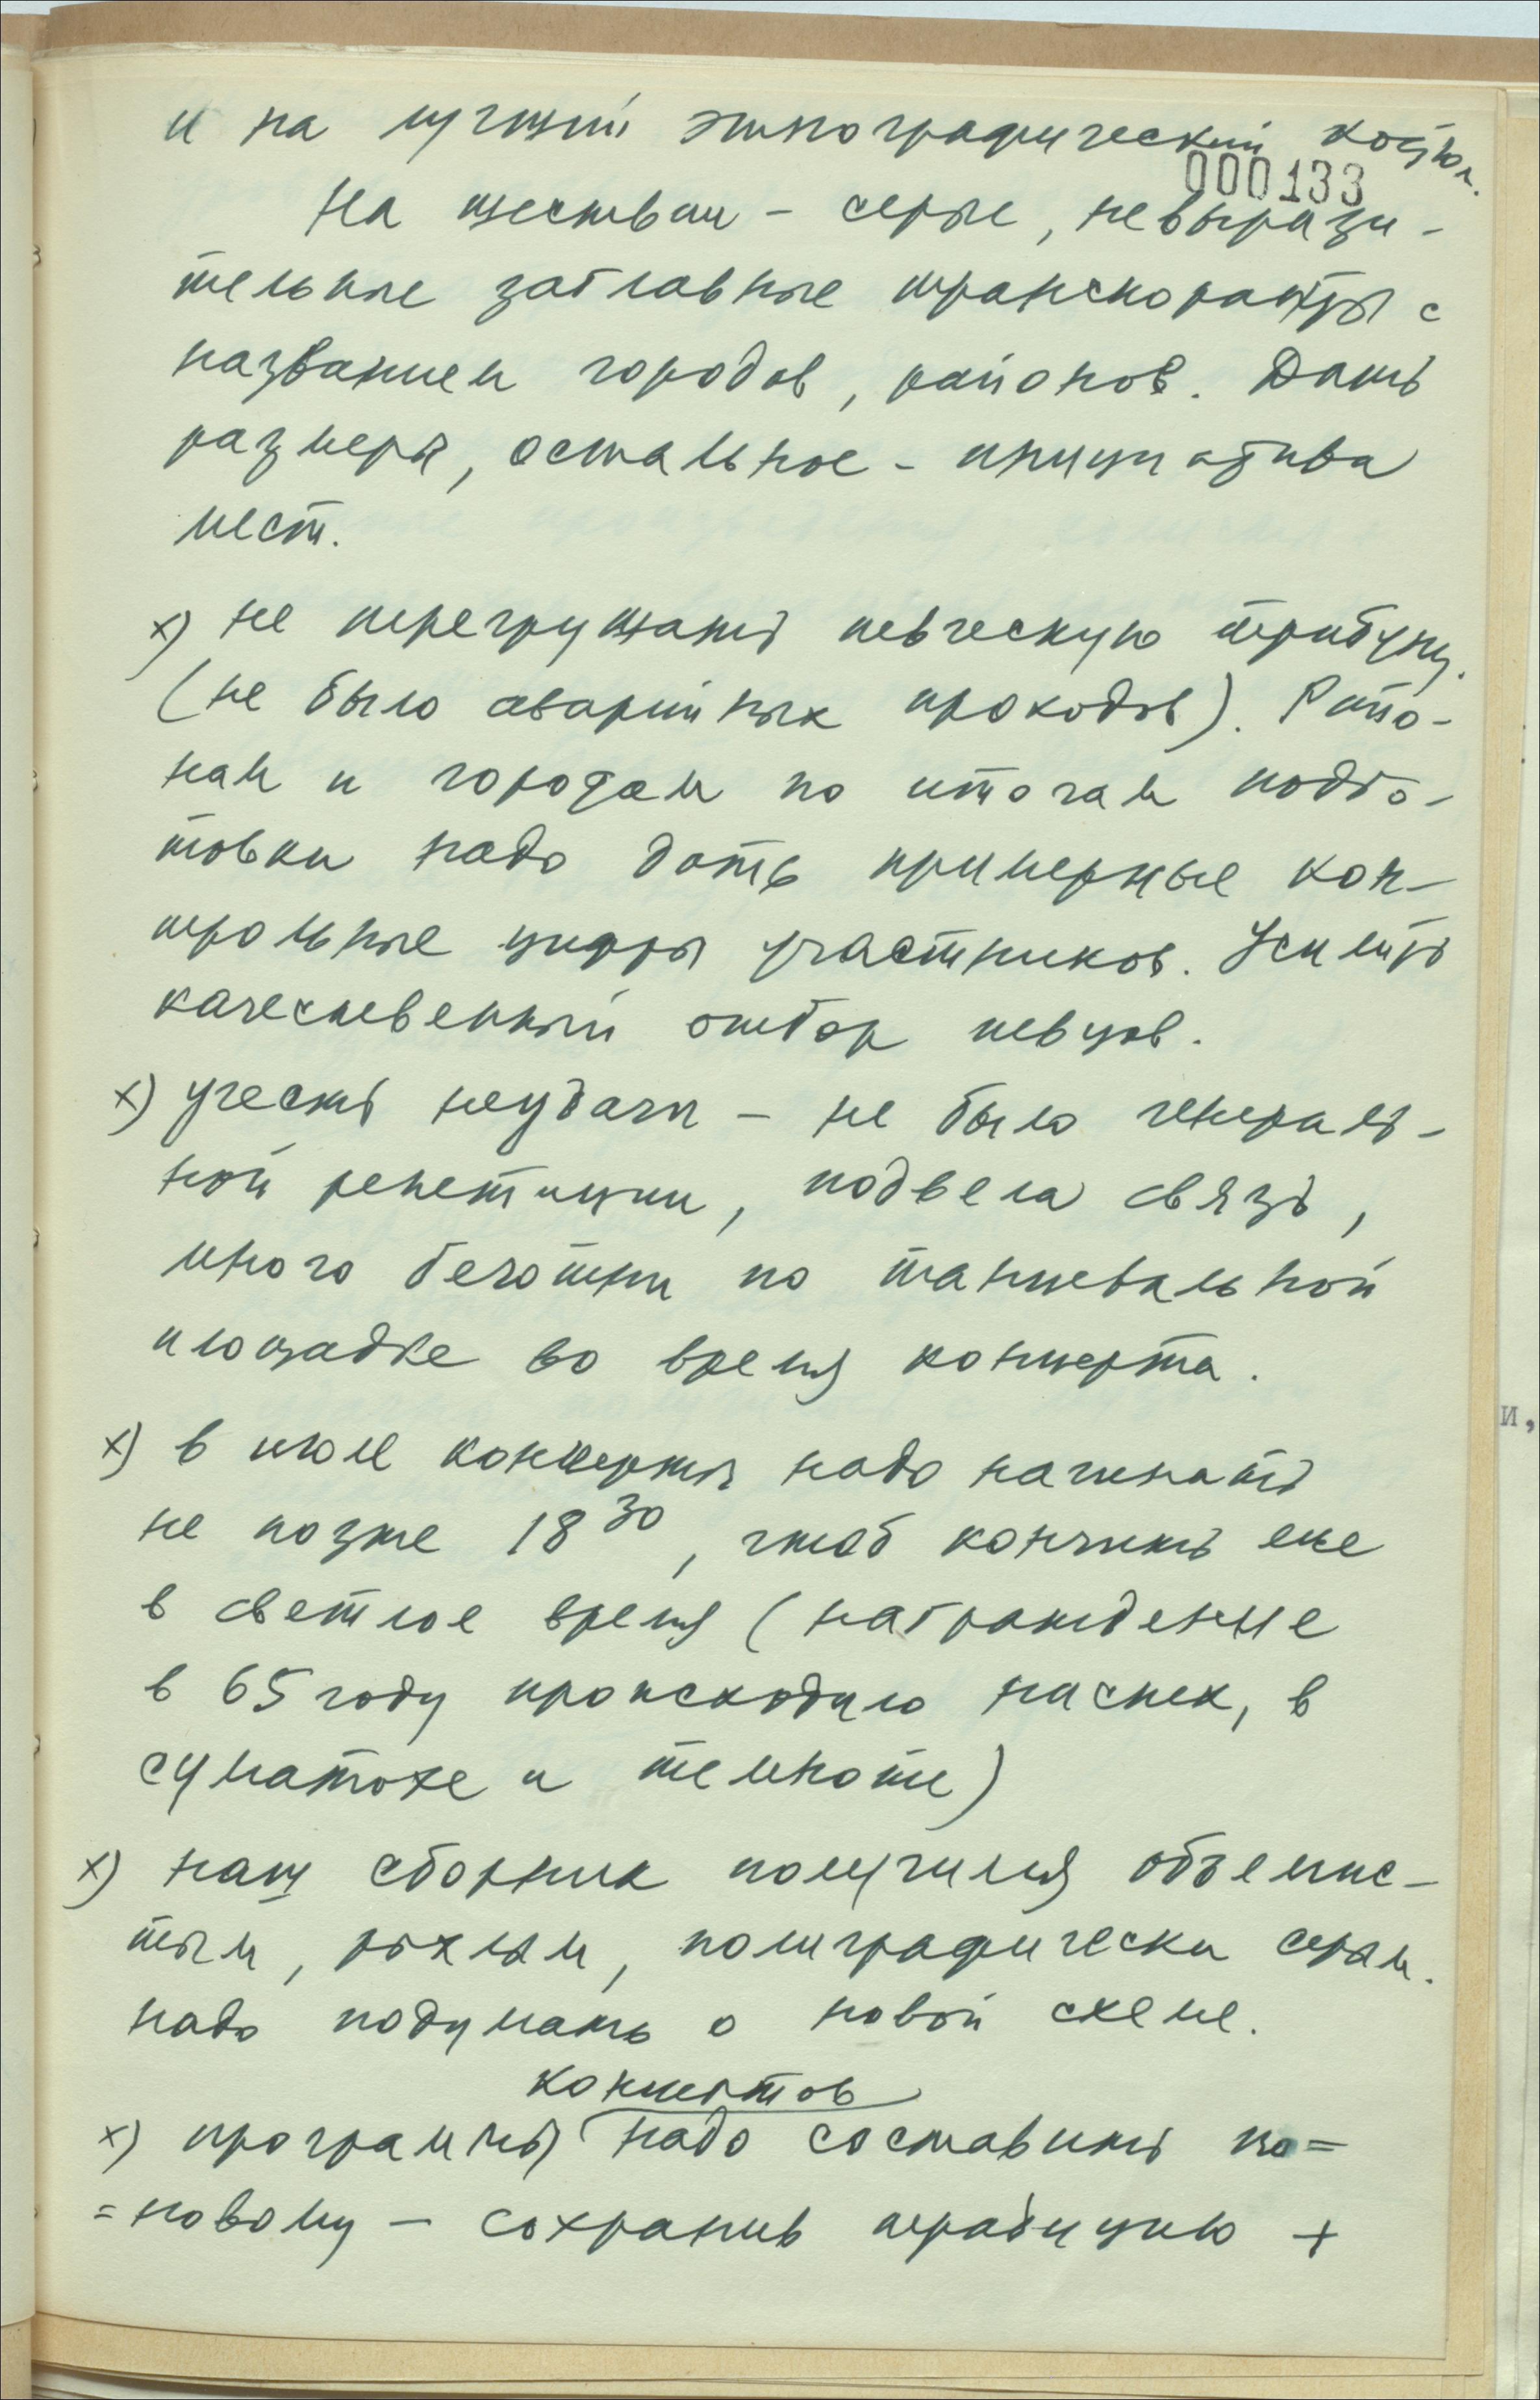 и на лучший этнографический костюм.
000133
На шествии - серые, невырази-
тельные заглавные транспоранты с
названием городов, районов. Дать
размеры, остальное - инициатива
мест.
х) не перегружать певческую трибуну.
(не было аварийных проходов). Райо-
нам и городам по итогам подго-
товки надо дать примерные кон-
трольные цифры участников. Усилить
качественный отбор певцов.
х) учесть неудачи - не было генераль-
ной репетиции, подвела связь,
много беготни по танцевальной
площадке во время концерта.
х) в июле концерты надо начинать
не позже 18 30, чтоб кончить еще
в светлое время (награждение
в 65 году происходило наспех, в
суматохе и темноте)
х) наш сборник получился объемис-
тым, рыхлым, полиграфически серым.
надо подумать о новой схеме.
концертов
х) программы надо составить по=
=новому - сохранив традицию +
и,